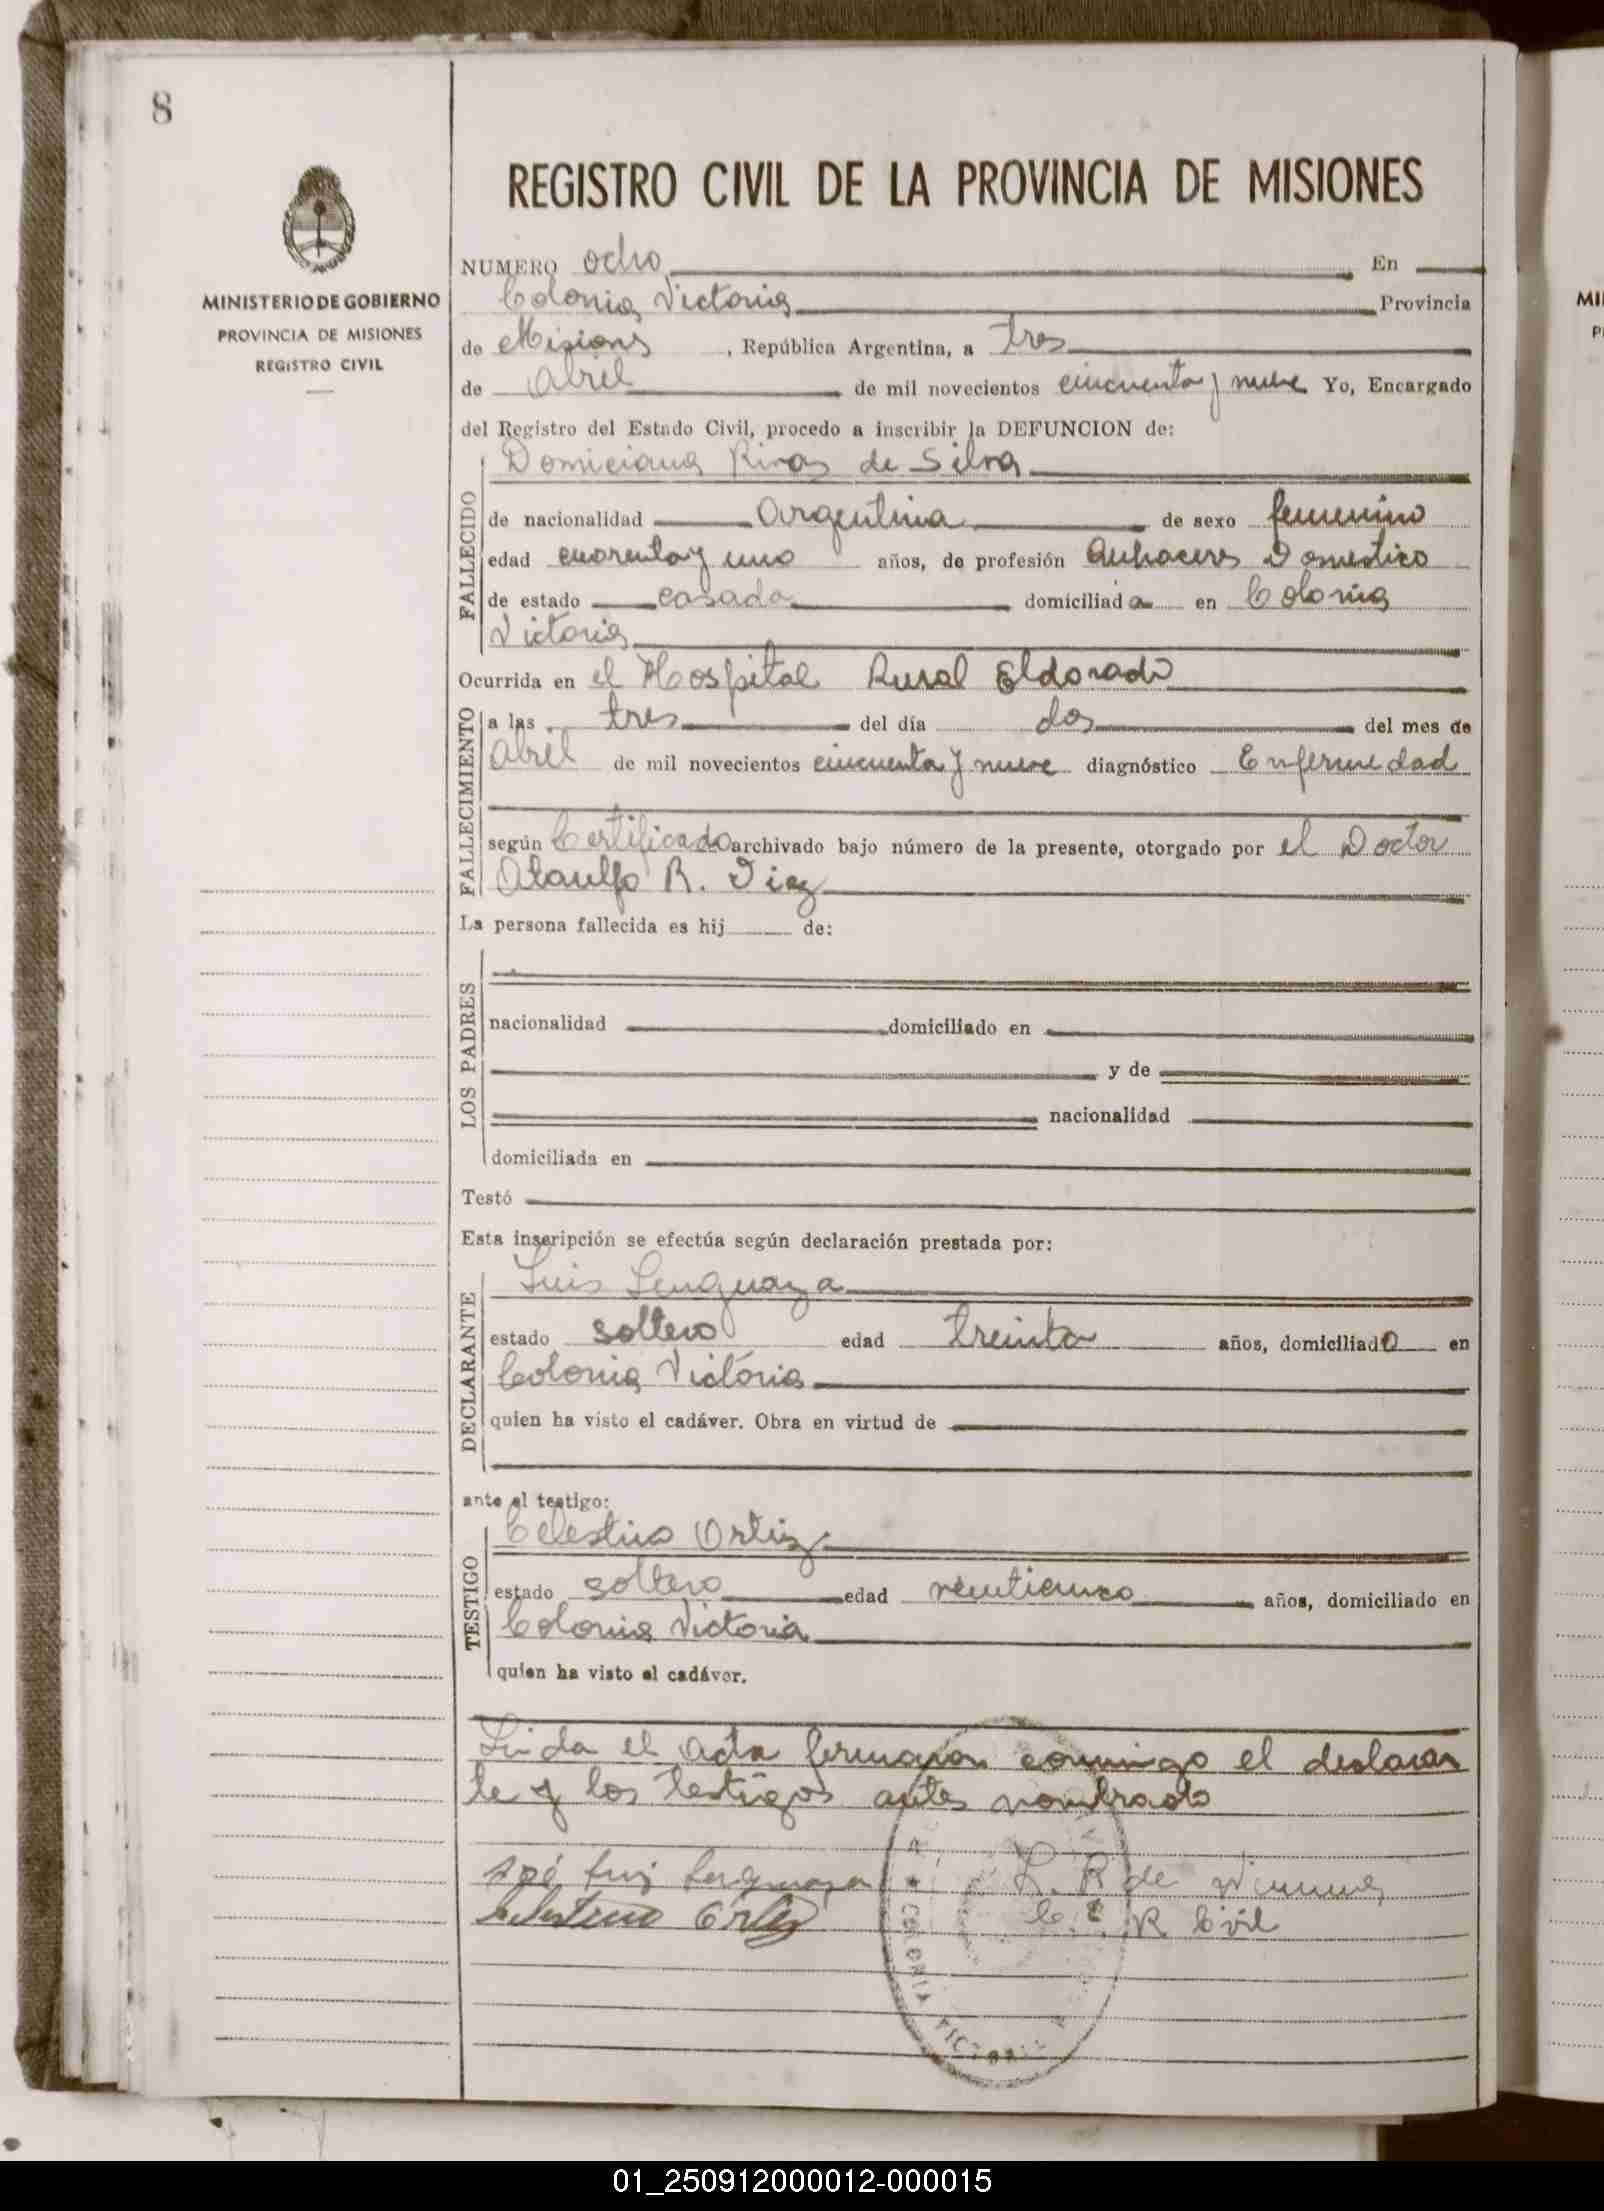 8
REGISTRO CIVIL DE LA PROVINCIA DE MISIONES
MINISTERIO DE GOBIERNO
PROVINCIA DE MISIONES
REGISTRO CIVIL
NUMERO ocho En
Colonia Victoria Provincia
de Misions , República Argentina, a tres
de Abril de mil novecientos cincuenta y nueve Yo, Encargado
del Registro del Estado Civil, procedo a inscribir la DEFUNCION de:
FALLECIDO
Domiciana Rivas de Silva
de nacionalidad Argentina de sexo femenino
edad cuarenta y uno años, de profesión Quhaceres Domestico
de estado casada domiciliada en Colonia
Victoria
Ocurrida en el Hospital Rural Eldorado
FALLECIMIENTO
a las tres del día dos del mes de
Abril de mil novecientos cincuenta y nueve diagnóstico Enfermedad
según Certificado archivado bajo número de la presente, otorgado por el Doctor
Ataulfo R. Diaz
La persona fallecida es hij de:
LOS PADRES
nacionalidad domiciliado en
y de
nacionalidad
domiciliada en
Testó
Esta inscripción se efectúa según declaración prestada por:
DECLARANTE
Luis Lenguaza
estado soltero edad treinta años, domiciliado en
Colonia Victoria
quien ha visto el cadáver. Obra en virtud de
ante el testigo:
TESTIGO
Celestino Ortiz
estado soltero edad veinticinco años, domiciliado en
Colonia Victoria
quien ha visto el cadáver.
Leida el acta firmaron conmigo el declaran
te y los testigos antes nombrado
Luis Lenguaza L. R de
Celestino Ortiz R Civil
COLONIA VICTORIA
01_250912000012-000015